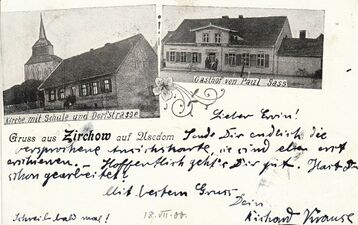 Kirche mit Schule und Dorfstrasse
Gasthof von Paul Sass
Gruss aus Zirchow auf Usedom
Lieber Erwin!
Sende Dir endlich die
versprochene Ansichtskarte, sie sind eben erst
erschienen. – Hoffentlich geht's Dir gut. Hast Du
schon gearbeitet?
Mit bestem Gruss
Dein
Richard Krause
Schreib bald mal!
18. VII. 00.